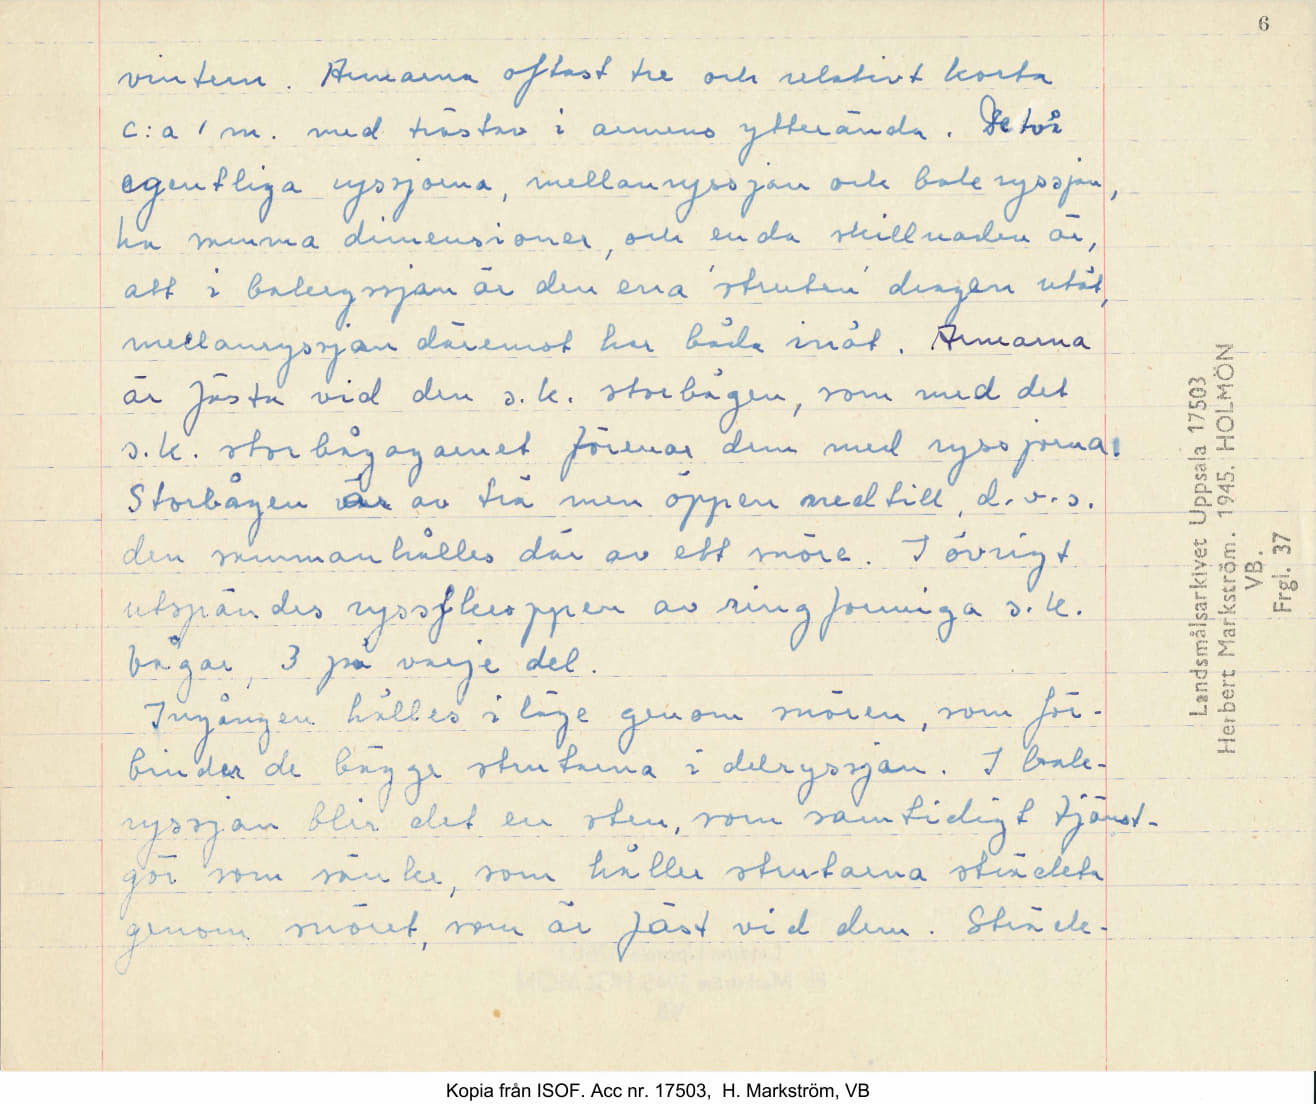 6
vintern. Armarna oftast tre och relativt korta
c:a 1 m. med trästav i armens ytterända. De två
egentliga ryssjorna, mellanryssjan och bakryssjan,
ha samma dimensioner, och enda skillnaden är,
att i bakryssjan är den ena 'struten' dragen utåt,
mellanryssjan däremot har båda inåt. Armarna
är fästa vid den s.k. storbågen, som med det
s.k. storbågagarnet förenar dem med ryssjorna.
Storbågen är av trä men öppen nedtill, d.v.s.
den sammanhålles där av ett snöre. I övrigt
utspändes ryssjkroppen av ringformiga s.k.
bågar, 3 på varje del.
Ingången hålles i läge genom snören, som för-
binder de bägge strutarna i delryssjan. I bak-
ryssjan blir det en sten, som samtidigt tjänst-
gör som sänke, som håller strutarna sträckta
genom snöret, som är fäst vid dem. Sträck-
Landsmålsarkivet Uppsala 17503
Herbert Markström. 1945. HOLMÖN
VB.
Frgl. 37
Kopia från ISOF. Acc nr. 17503, H. Markström, VB